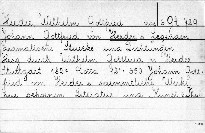 Herder Wilhelm Gottfried von 6 Of 429
Johann Gottfried von Herder's Legenden
dramatische Stücke und Dichtungen
Hrsg durch Wilhelm Gottfried v. Herder
Stuttgart 1827 Cotta 8° 353 Johann Gott-
fried von Herder's sämmtliche Werke
zur schönen Literatur und Kunst